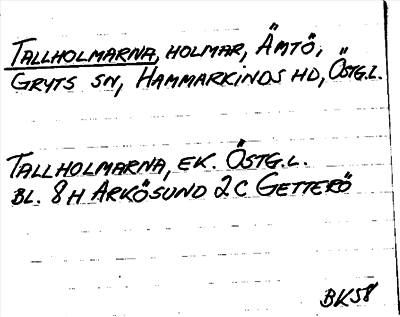 TALLHOLMARNA, HOLMAR, ÄMTÖ,
GRYTS SN, HAMMARKINDS HD, ÖSTG.L.
TALLHOLMARNA, EK. ÖSTG.L.
BL. 8H ARKÖSUND 2C GETTERÖ
BK58